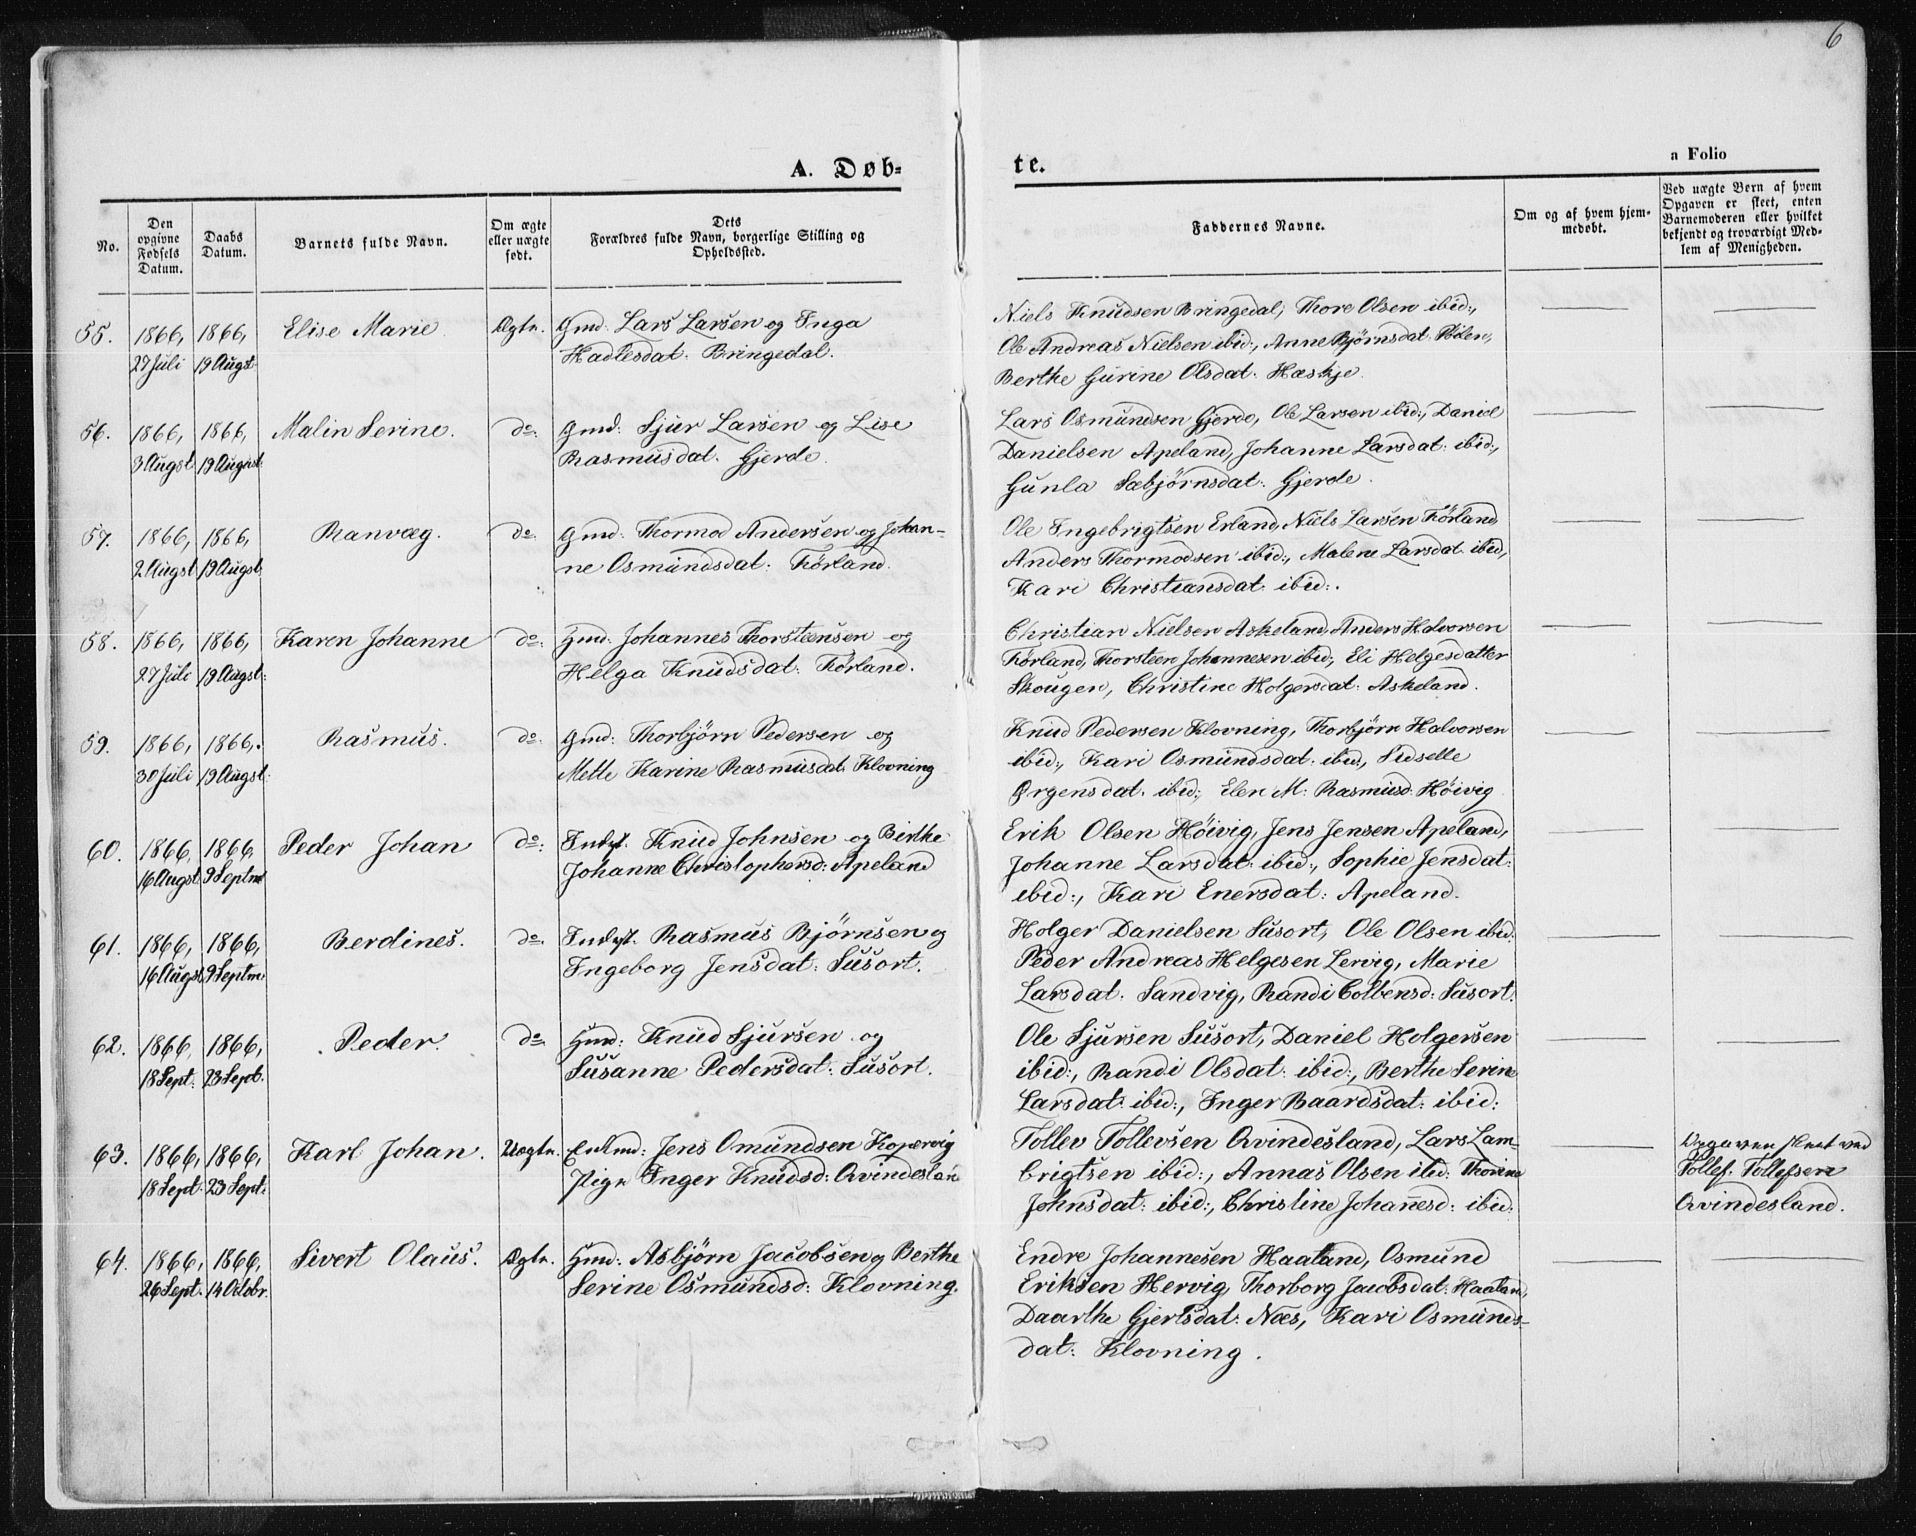 6
A. Døb=
te.
a Folio
No.
Den opgivne Fødsels Datum.
Daabs Datum.
Barnets fulde Navn.
Om ægte eller uægte født.
Dets Forældres fulde Navn, borgerlige Stilling og Opholdssted.
Faddernes Navne.
Om og af hvem hjemmedøbt.
Ved uægte Børn af hvem Opgaven er skeet, enten Barnemoderen eller hvilket bekjendt og troværdigt Medlem af Menigheden.
55. 1866, 1866, Elise Marie Ægte. Gmd. Lars Larsen og Inga
27 Juli 19 Augst. Hadlesdat. Bringedal.
Niels Knudsen Bringedal, Thore Olsen ibid:,
Ole Andreas Nielsen ibid:, Anne Bjørnsdat.
Berthe Gurine Olsdat. Hæskje
56. 1866, 1866, Malin Serine. do. Gmd: Sjur Larsen og Lise
3 Augst 19 August Rasmusdat. Gjerde
Lars Osmundsen Gjerde, Ole Larsen ibid:, Daniel
Danielsen Apeland, Johanne Larsdat: ibid:,
Gunla Sæbjørnsdat: Gjerde.
57. 1866, 1866, Ranvæg. do. Gmd: Thormod Andersen og Johan-
2 Augst 19 Augst. ne Osmundsdat: Førland.
Ole Ingebrigtsen Erland, Niels Larsen Førland,
Anders Thormodsen ibid:, Malene Larsdat ibid,
Kari Christiansdat ibid:.
58. 1866, 1866, Karen Johanne do: Gmd: Johannes Thorsteensen og
27 Juli 19 Augst: Helga Knudsdat: Førland.
Christian Nielsen Askeland, Anders Halvorsen
Førland, Thorsteen Johannesen ibid, Eli Helgesdatter
Skougen, Christine Holgersdat: Askeland.
59. 1866, 1866, Rasmus. do. Gmd: Thorbjörn Pedersen og
30 Juli 19 Augst: Mette Karine Rasmusdat: Klovning
Knud Pedersen Klovning, Thorbjörn Halvorsen
ibid:, Kari Osmundsdat: ibid:, Sidselle
Ørgensdat. ibid:, Elen M: Rasmusd: Höivig
60. 1866, 1866, Peder Johan do: Indst. Knud Johnsen og Birthe
16 Augst 9 Septm Johanne Christophersd: Apeland
Erik Olsen Höivig, Jens Jensen Apeland,
Johanne Larsdat: ibid:, Sophie Jensdat:
ibid:, Kari Enersdat: Apeland.
61. 1866, 1866, Berdines. do. Indst. Rasmus Bjørnsen og
16 Augst. 9 Septm: Ingeborg Jensdat: Susort.
Holger Danielsen Susort, Ole Olsen ibid.
Peder Andreas Helgesen Lervig, Marie
Larsdat. Sandvig, Randi Colbensd: Susort.
62. 1866, 1866, Peder. do. Gmd: Knud Sjursen og
18 Sept: 23 Sept. Susanne Pedersdat: Susort.
Ole Sjursen Susort, Daniel Holgersen
ibid:, Randi Olsdat: ibid:, Berthe Serine
Larsdat: ibid:, Inger Baardsdat: ibid:
63. 1866, 1866, Karl Johan. Uægte. Enkmd: Jens Omundsen Kopervig
18 Sept: 23 Sept: Pige Inger Knudsd: Qvindesland
Tollev Tollevsen Qvindesland, Lars Lam-
brigtsen ibid:, Annas Olsen ibid: Thorine
Johnsdat: ibid:, Christine Johanesd: ibid:
Opgaven skeet ved
Tollef Tollefsen
Qvindesland.
64. 1866, 1866, Sivert Olaus. Ægte. Gmd: Asbjørn Jacobsen og Berthe
26 Sept: 14 Octobr. Serine Osmundsd: Klovning.
Endre Johannesen Haaland, Osmund
Eriksen Hervig, Thorborg Jacobsdat: Haaland,
Daarthe Gjertsdat: Næs, Kari Osmunds-
dat: Klovning.